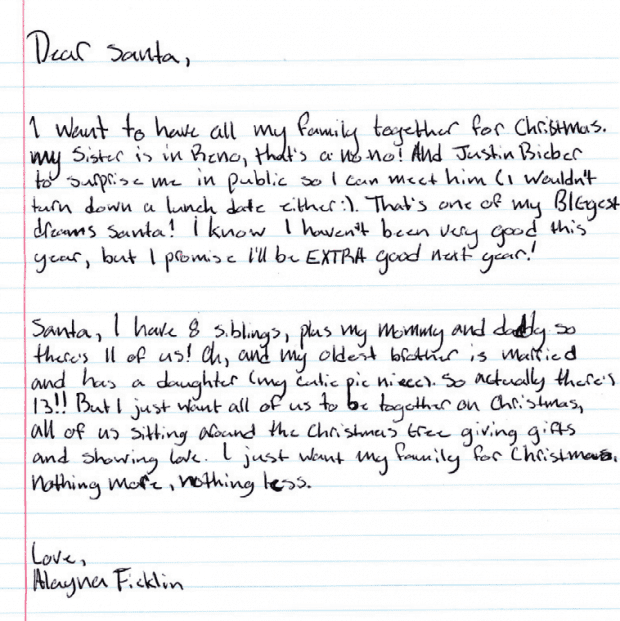 Dear Santa,
I want to have all my family together for Christmas.
my Sister is in Reno, that's a no no! And Justin Bieber
to surprise me in public so I can meet him (I wouldn't
turn down a lunch date either:). That's one of my BIGgest
dreams santa! I know I haven't been very good this
year, but I promise I'll be EXTRA good next year!
Santa, I have 8 siblings, plus my mommy and daddy so
there's 11 of us! Oh, and my oldest brother is married
and has a daughter (my cutie pie niece). So actually there's
13!! But I just want all of us to be together on Christmas,
all of us sitting around the Christmas tree giving gifts
and showing love. I just want my family for Christmas.
Nothing more, nothing less.
Love,
Alayna Ficklin